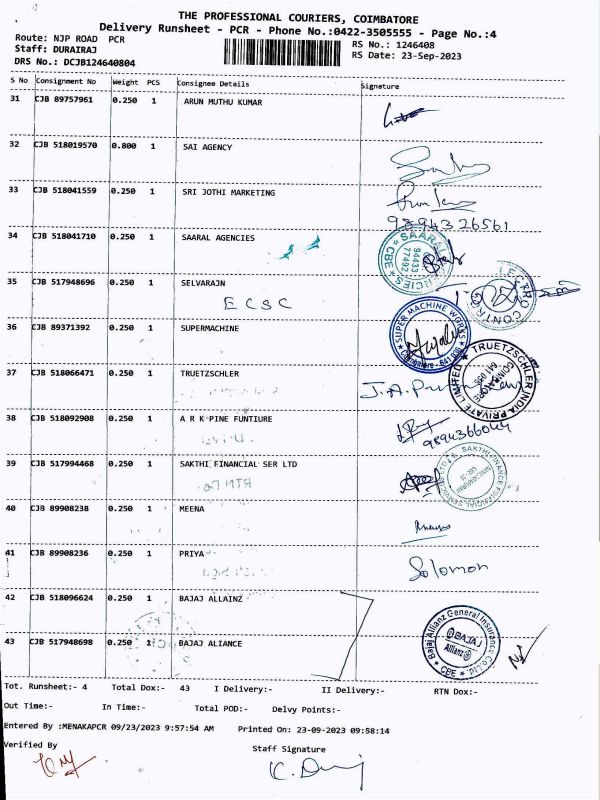 THE PROFESSIONAL COURIERS, COIMBATORE
Delivery Runsheet - PCR - Phone No.:0422-3505555 - Page No.:4
Route: NJP ROAD PCR
RS No.: 1246408
Staff: DURAIRAJ
RS Date: 23-Sep-2023
DRS No.: DCJB124640804
S No Consignment No Weight PCS Consignee Details Signature
31 CJB 89757961 0.250 1 ARUN MUTHU KUMAR
32 CJB 518019570 0.800 1 SAI AGENCY
33 CJB 518041559 0.250 1 SRI JOTHI MARKETING
9394326561
34 CJB 518041710 0.250 1 SAARAL AGENCIES
SAARAL AGENCIES CBE 94433 77492
35 CJB 517948696 0.250 1 SELVARAJN
ECSC
36 CJB 89371392 0.250 1 SUPERMACHINE
SUPER MACHINE WORKS
37 CJB 518066471 1 TRUETZSCHLER
TRUETZSCHLER INDIA PRIVATE LIMITED
38 CJB 518092908 0.250 1 A R K PINE FUNTIURE
9894366044
39 CJB 517994468 0.250 1 SAKTHI FINANCIAL SER LTD
40 CJB 89908238 0.250 1 MEENA
41 CJB 89908236 0.250 1 PRIYA
Solomon
42 CJB 518096624 0.250 1 BAJAJ ALLAINZ
43 CJB 517948698 0.250 1 BAJAJ ALIANCE
Bajaj Allianz General Insurance Co Ltd CBE
BAJAJ
Allianz
Tot. Runsheet:- 4 Total Dox:- 43 I Delivery:- II Delivery:- RTN Dox:-
Out Time:- In Time:- Total POD:- Delvy Points:-
Entered By :MENAKAPCR 09/23/2023 9:57:54 AM Printed On: 23-09-2023 09:58:14
Verified By Staff Signature